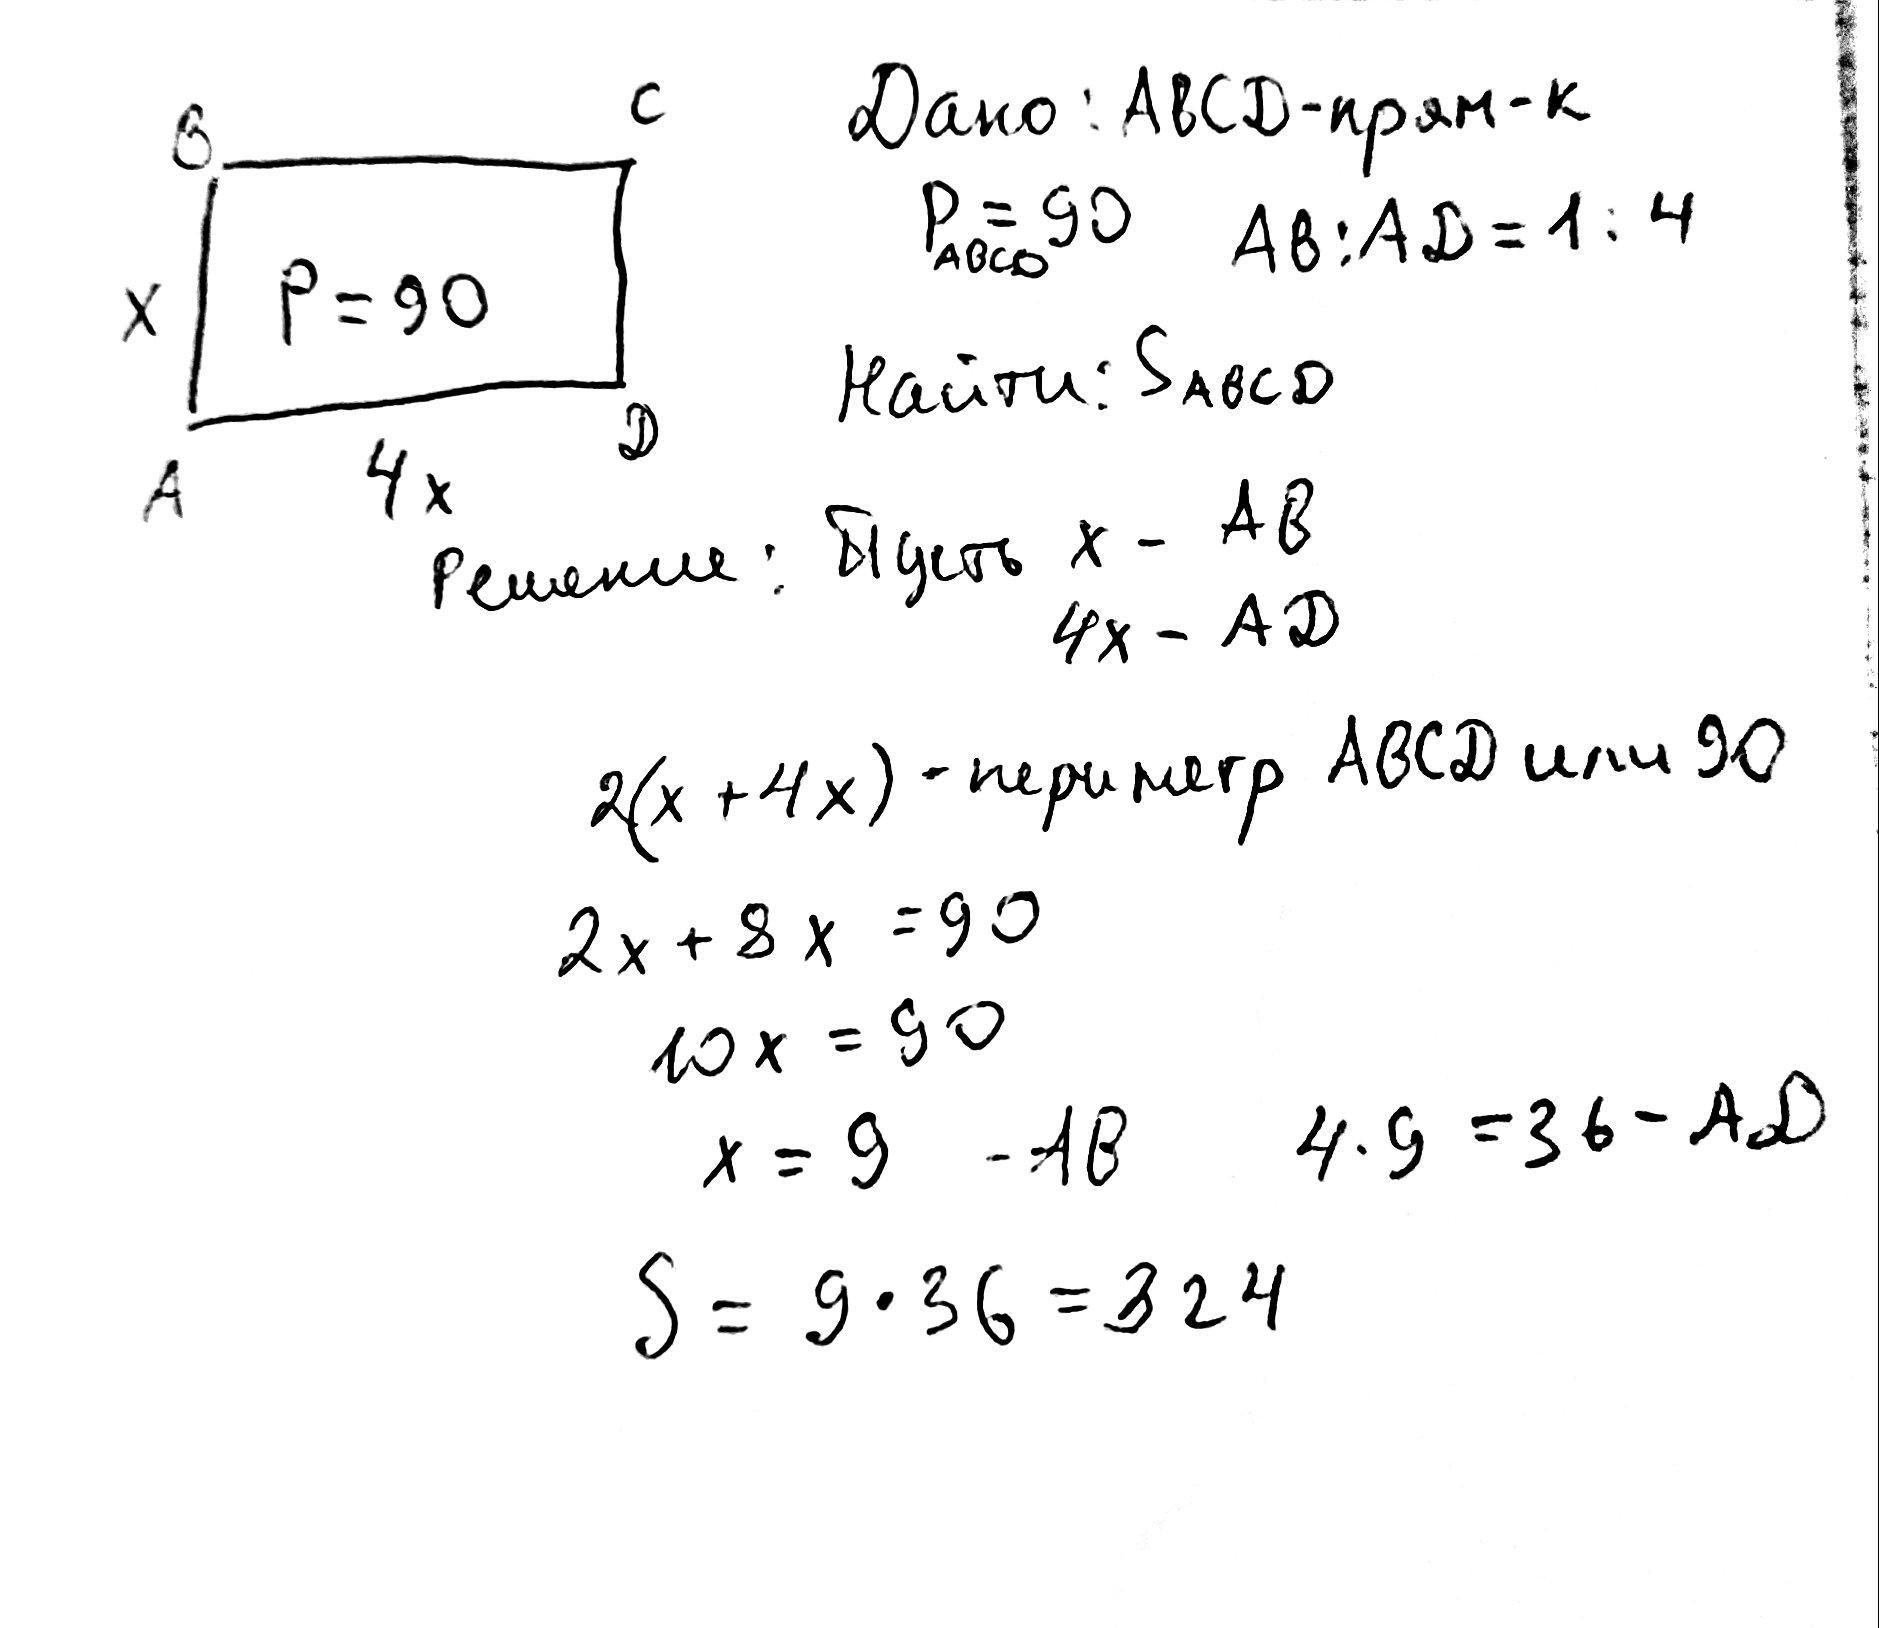 B C
Дано: ABCD-прям-к
P ABCD = 90 AB:AD = 1:4
x P = 90
Найти: S ABCD
A 4x D
Решение: Пусть x - AB
4x - AD
2(x + 4x) - периметр ABCD или 90
2x + 8x = 90
10x = 90
x = 9 - AB 4·9 = 36 - AD
S = 9·36 = 324